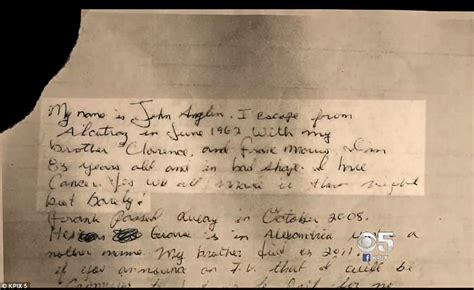 My name is John Anglin. I escape from
Alcatraz in June 1962 with my
brother Clarence, and Frank Morris. I'm
83 years old and in bad shape. I have
Cancer. Yes we all made it that night
but barely!
Frank passed away in October 2008.
His grave is in Alexandria under a
nother name. My brother died in 2011.
If you announce on T.V. that I will be
to jail for no
5
KPIX
© KPIX 5